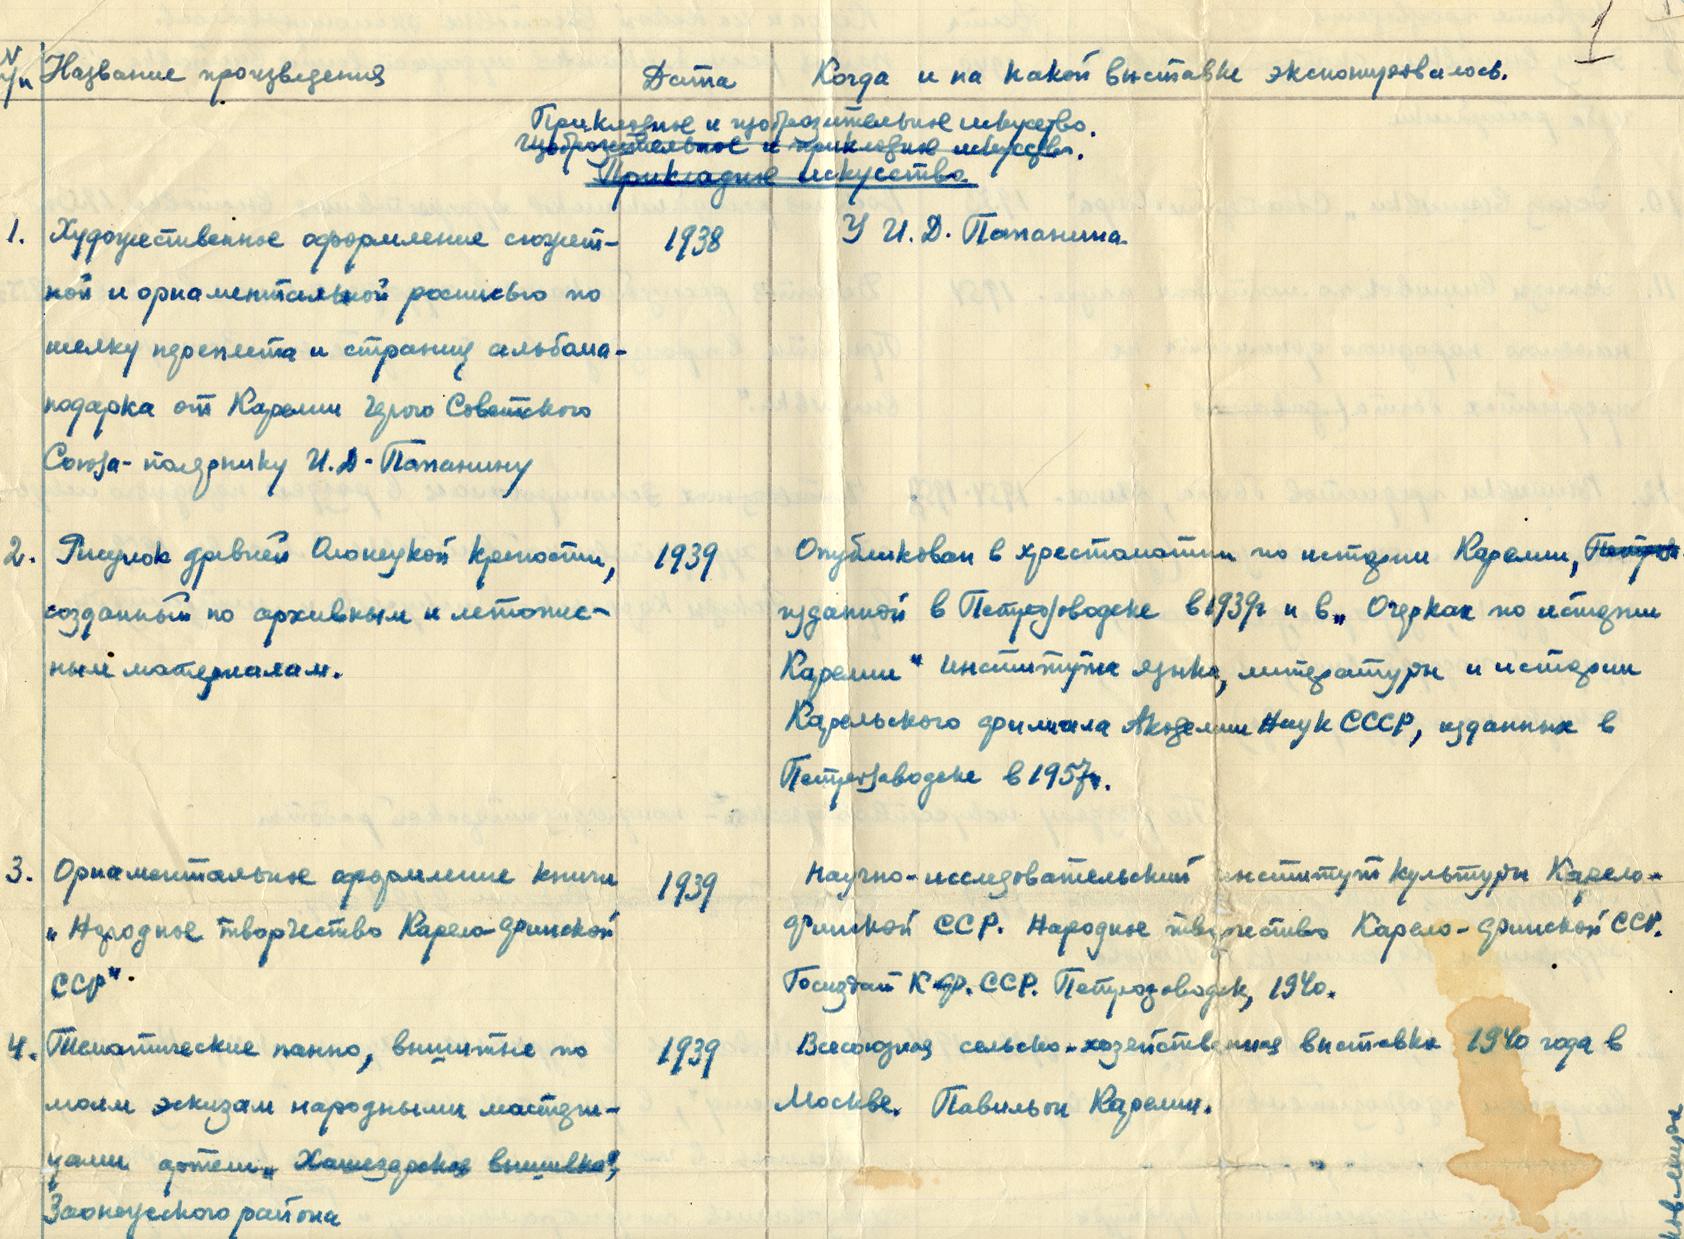 1
N п/п Название произведения Дата Когда и на какой выставке экспонировалось.
Прикладное и изобразительное искусство.
Изобразительное и прикладное искусство.
Прикладное искусство.
1. Художественное оформление сюжет- 1938 У И. Д. Папанина.
ной и орнаментальной росписью по
шелку переплета и страниц альбома-
подарка от Карелии Герою Советского
Союза- полярнику И. Д. Папанину
2. Рисунок древней Олонецкой крепости, 1939 Опубликован в хрестоматии по истории Карелии,
созданный по архивным и летопис- изданной в Петрозаводске в 1939г и в „Очерках по истории
ным материалам. Карелии" института языка, литературы и истории
Карельского филиала Академии Наук СССР, изданных в
Петрозаводске в 1957г.
3. Орнаментальное оформление книги 1939 Научно-исследовательский институт культуры Карело-
„Народное творчество Карело-Финской финской ССР. Народное творчество Карело-финской ССР.
ССР". Госиздат К-Ф. ССР. Петрозаводск, 1940.
4. Тематические панно, вышитые по 1939 Всесоюзная сельско-хозяйственная выставка 1940 года в
моим эскизам народными мастери- Москве. Павильон Карелии.
цами артели „ вышивка",
Заонежского района